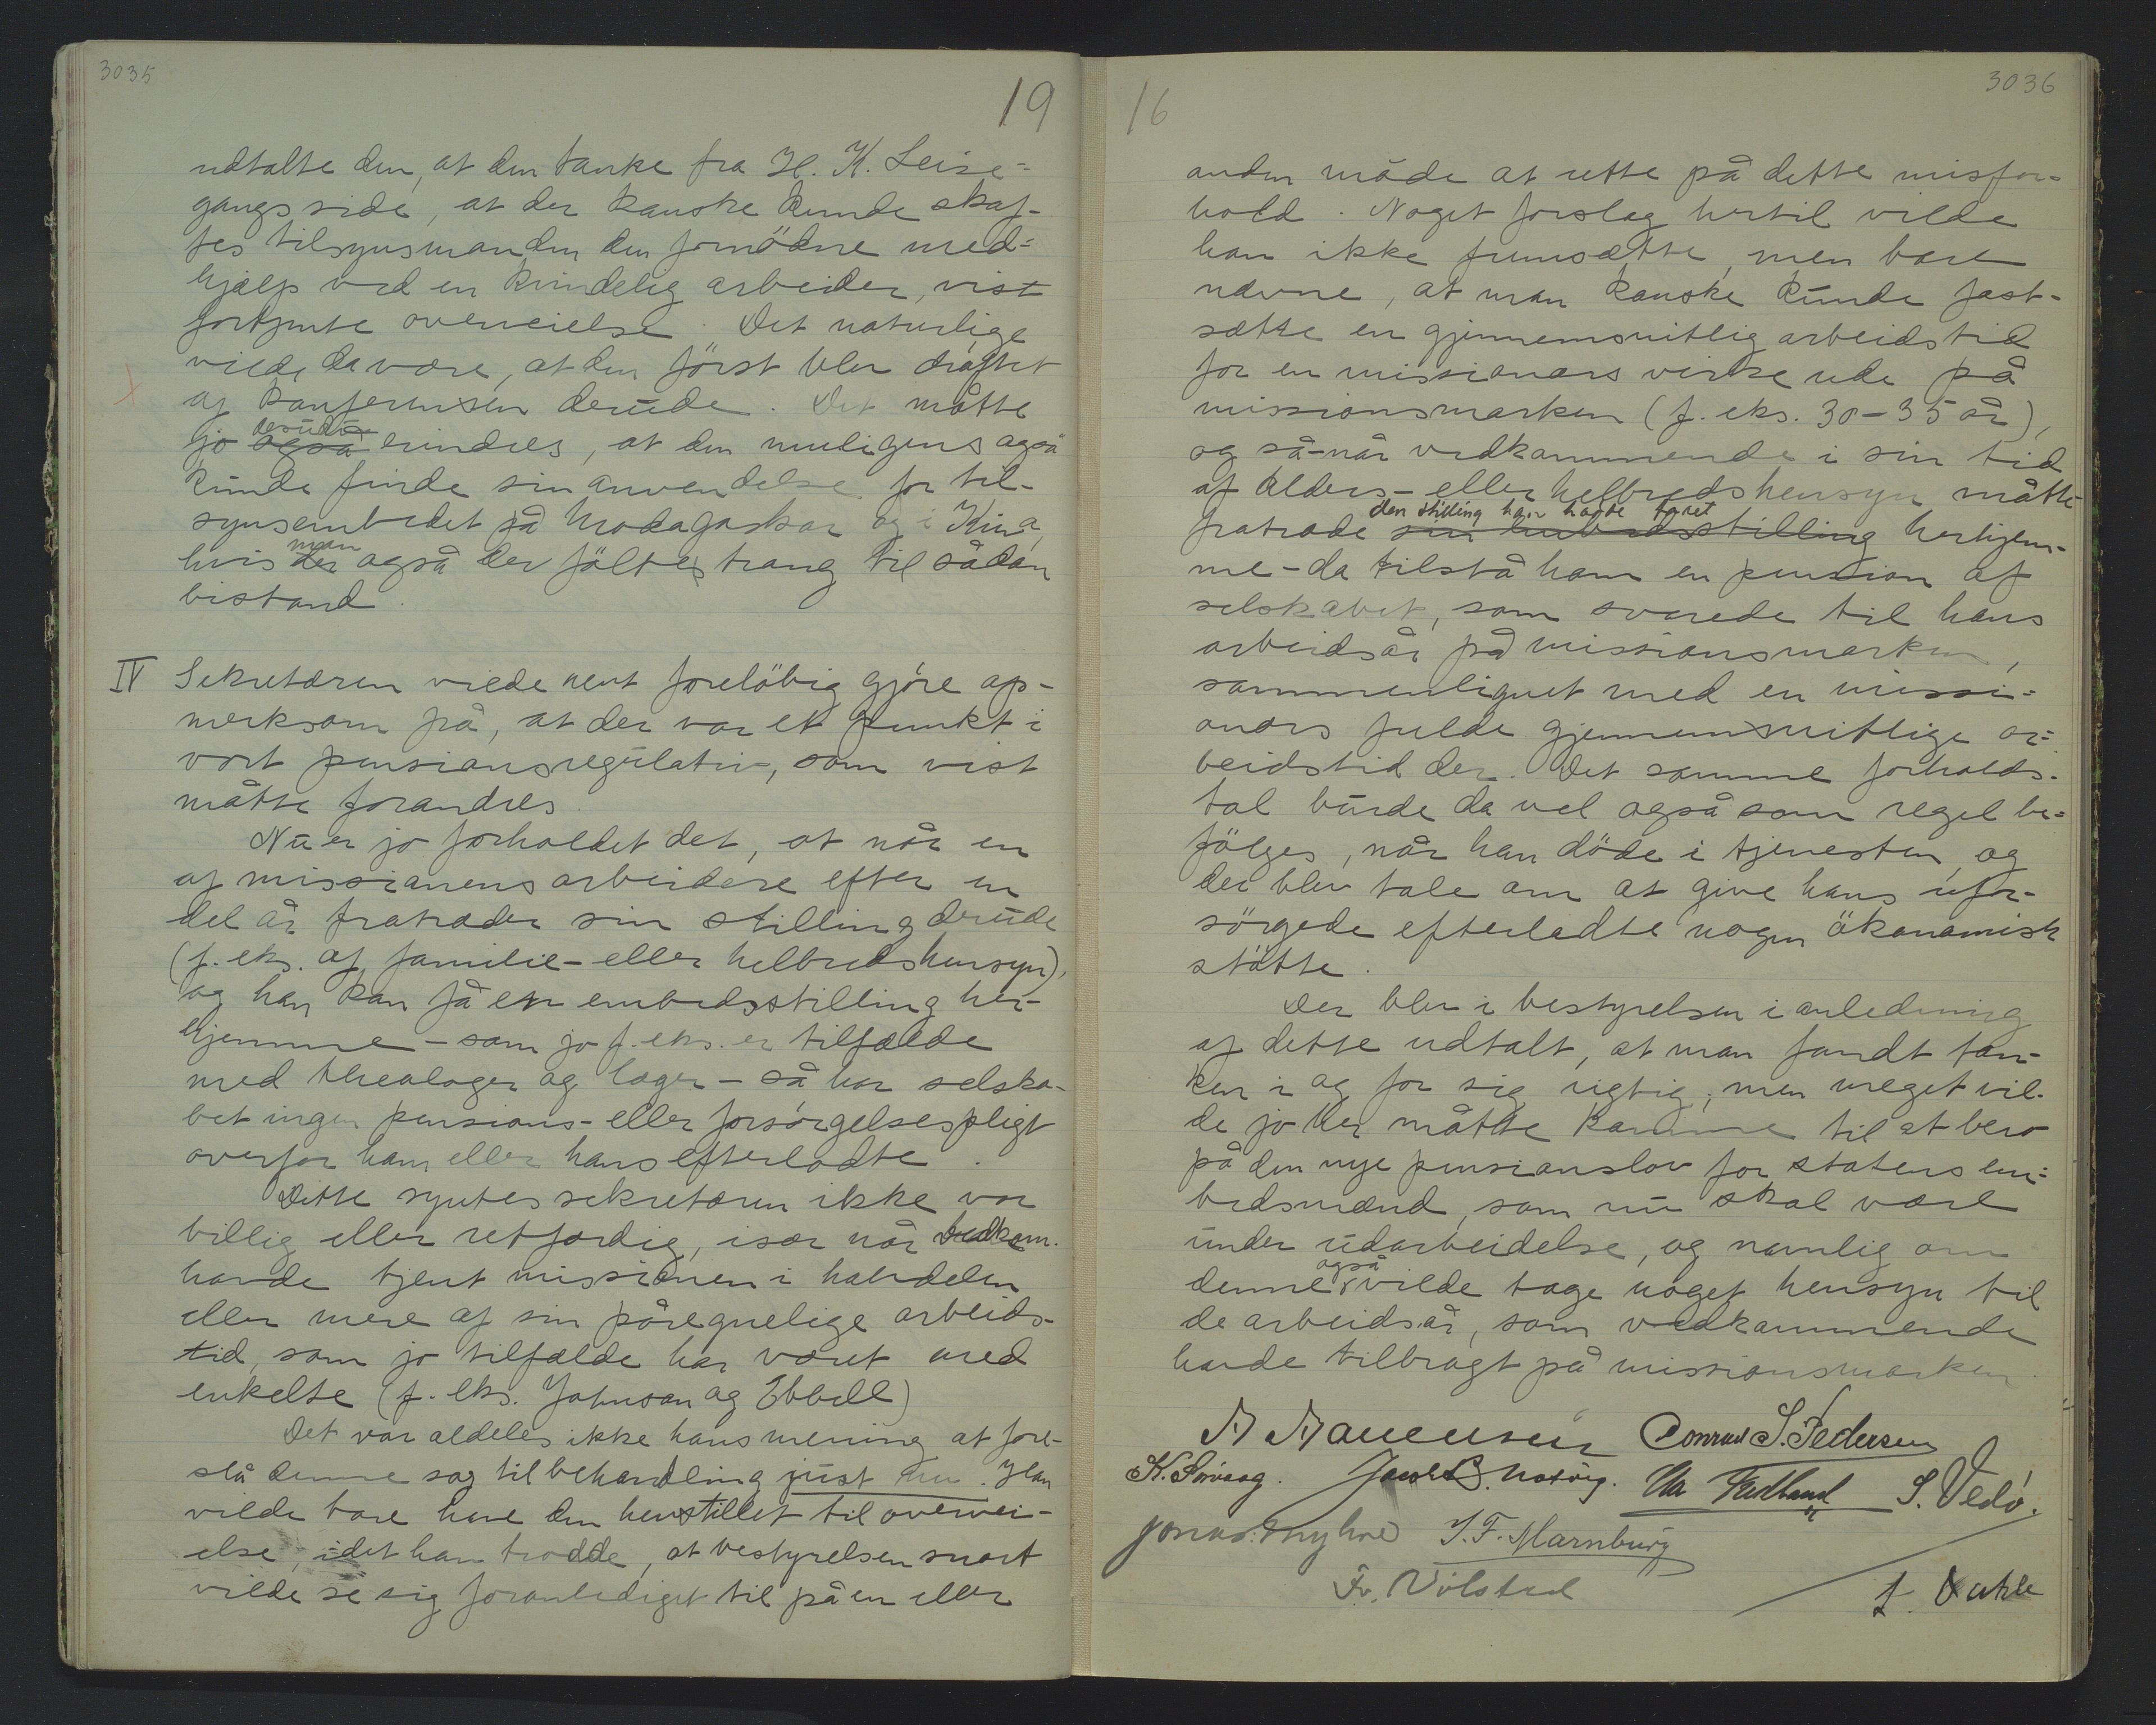 3035
19
udtalte den, at den tanke fra H. K. Leise=
gangs side, at der kanske kunde skaf-
fes tilsynsmanden den fornödne med=
hjælp ved en kvindelig arbeider, vist
fortjente overveielse. Det naturlige
vilde da være, at den först blev dröftet
af konferensen derude. Det måtte
jo også desuden erindres, at den muligens også
kunde finde sin anvendelse for til-
synsembedet på Madagaskar og i Kina,
hvis man også der fölte trang til sådan
bistand.
IV Sekretæren vilde nent forelöbig gjöre op-
merksom på, at der var et punkt i
vort pensionsregulativ, som vist
måtte forandres.
Nu er jo forholdet det, at når en
af missionens arbeidere efter en
del år fratræder sin stilling derude
(f. eks. af familie- eller helbredshensyn),
og han kan få en embedsstilling her-
hjemme - som jo f. eks. er tilfælde
med theologer og læger - så har selska-
bet ingen pensions- eller forsörgelsespligt
overfor ham eller hans efterladte.
Dette syntes sekretæren ikke var
billig eller retfærdig, især når vedkom.
havde tjent missionen i halvdelen
eller mere af sin påregnelige arbeids-
tid, som jo tilfælde har været med
enkelte (f. eks. Johnson og Ebbell)
Det var aldeles ikke hans mening at fore-
slå denne sag til behandling just nu. Han
vilde bare have den henstillet til overvei-
else, idet han trodde, at bestyrelsen snart
vilde se sig foranlediget til på en eller
16
3036
anden måde at rette på dette misfor-
hold. Noget forslag hertil vilde
han ikke fremsætte, men bare
nævne, at man kanske kunde fast-
sætte en gjennemsnitlig arbeidstid
for en missionærs virke ude på
missionsmarken (f. eks. 30-35 år),
og så - når vedkommende i sin tid
af alders- eller helbredshensyn måtte
den stilling han havde faret
fratræde sin embedsstilling herhjem-
me - da tilstå ham en pension af
selskabet, som svarede til hans
arbeidsår på missionsmarken,
sammenlignet med en missi-
onærs fulde gjennemsnitlige ar=
beidstid der. Det samme forholds-
tal burde da vel også som regel be=
fölges, når han döde i tjenesten, og
der blev tale om at give hans ufor-
sörgede efterladte nogen ökonomisk
stötte.
Der blev i bestyrelsen i anledning
af dette udtalt, at man fandt tan-
ken i og for sig rigtig, men meget vil-
de jo her måtte komme til at bero
på den nye pensionslov for statens em=
bedsmænd, som nu skal være
under udarbeidelse, og navnlig om
denne også vilde tage noget hensyn til
de arbeidsår, som vedkommende
havde tilbragt på missionsmarken.
Conrad S. Pedersen
K. Sörvaag. Jacob S. S. Vedö.
Jonas Myhre J. F. Marnburg
Fr. Völsted